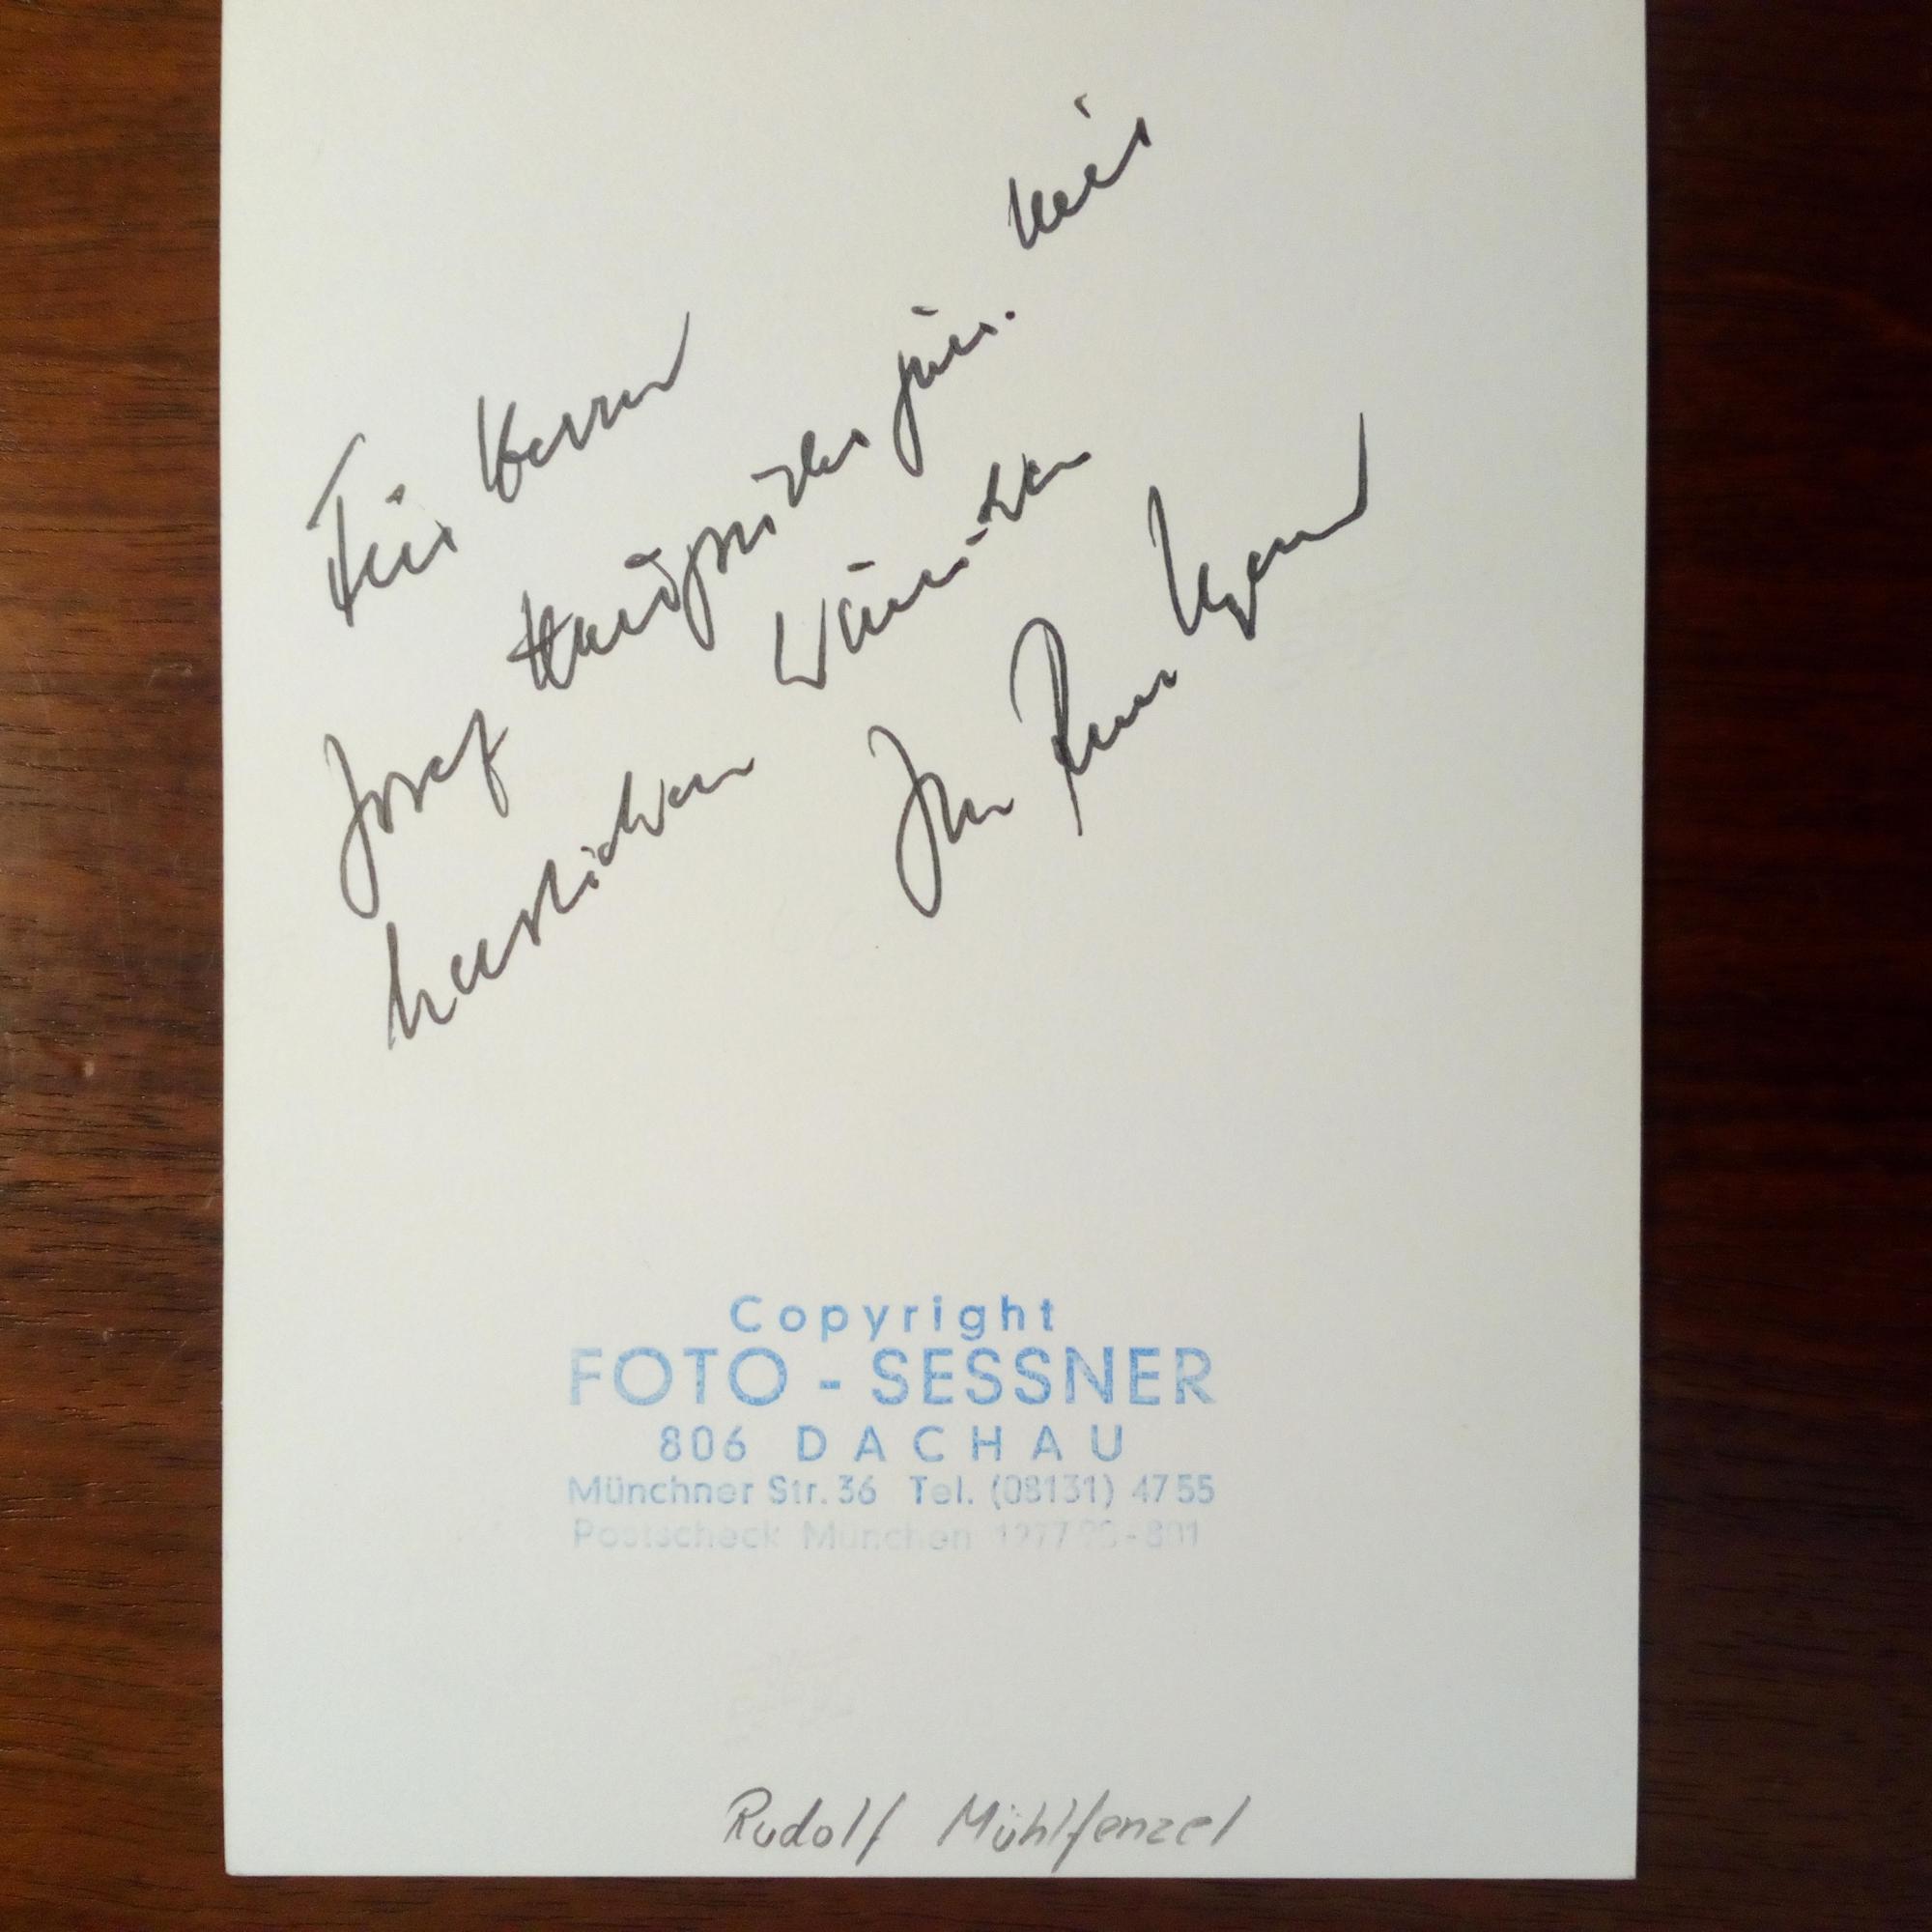 Für Herrn
Josef jun. mit
herzlichen Wünschen
Ihr
Copyright
FOTO - SESSNER
806 DACHAU
Münchner Str. 36 Tel. (08131) 4755
Postscheck München
Rudolf Mühlfenzel